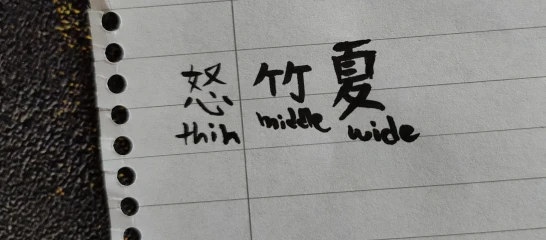 怒 竹 夏
thin middle wide